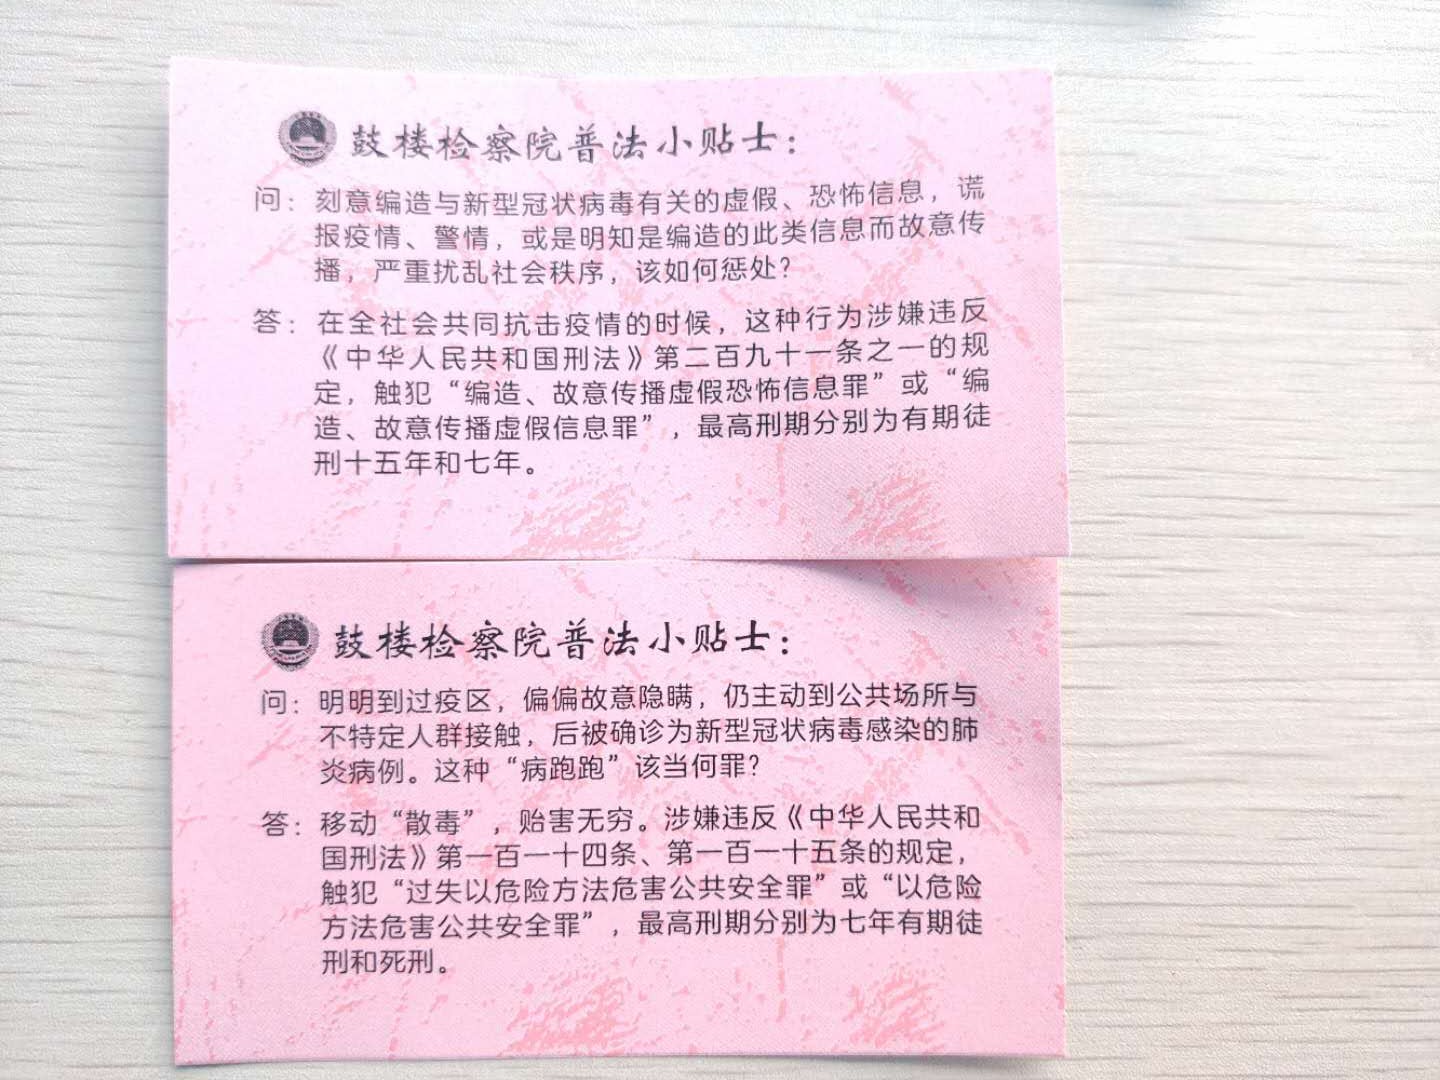 鼓楼检察院普法小贴士：
问：刻意编造与新型冠状病毒有关的虚假、恐怖信息，谎
报疫情、警情，或是明知是编造的此类信息而故意传
播，严重扰乱社会秩序，该如何惩处？
答：在全社会共同抗击疫情的时候，这种行为涉嫌违反
《中华人民共和国刑法》第二百九十一条之一的规
定，触犯“编造、故意传播虚假恐怖信息罪”或“编
造、故意传播虚假信息罪”，最高刑期分别为有期徒
刑十五年和七年。
鼓楼检察院普法小贴士：
问：明明到过疫区，偏偏故意隐瞒，仍主动到公共场所与
不特定人群接触，后被确诊为新型冠状病毒感染的肺
炎病例。这种“病跑跑”该当何罪？
答：移动“散毒”，贻害无穷。涉嫌违反《中华人民共和
国刑法》第一百一十四条、第一百一十五条的规定，
触犯“过失以危险方法危害公共安全罪”或“以危险
方法危害公共安全罪”，最高刑期分别为七年有期徒
刑和死刑。